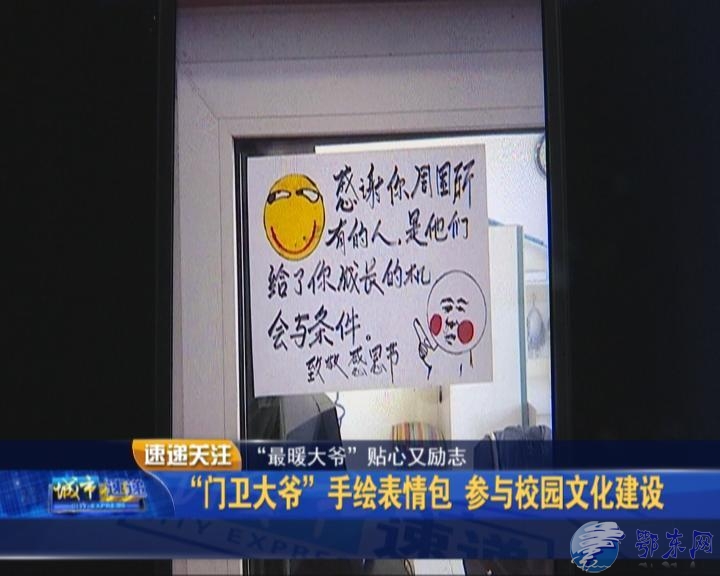 感谢你周围所
有的人,是他们
给了你成长的机
会与条件。
致敬感恩节
速递关注
“最暖大爷”贴心又励志
城市速递
“门卫大爷”手绘表情包 参与校园文化建设
CITY EXPRESS
速递
鄂东网